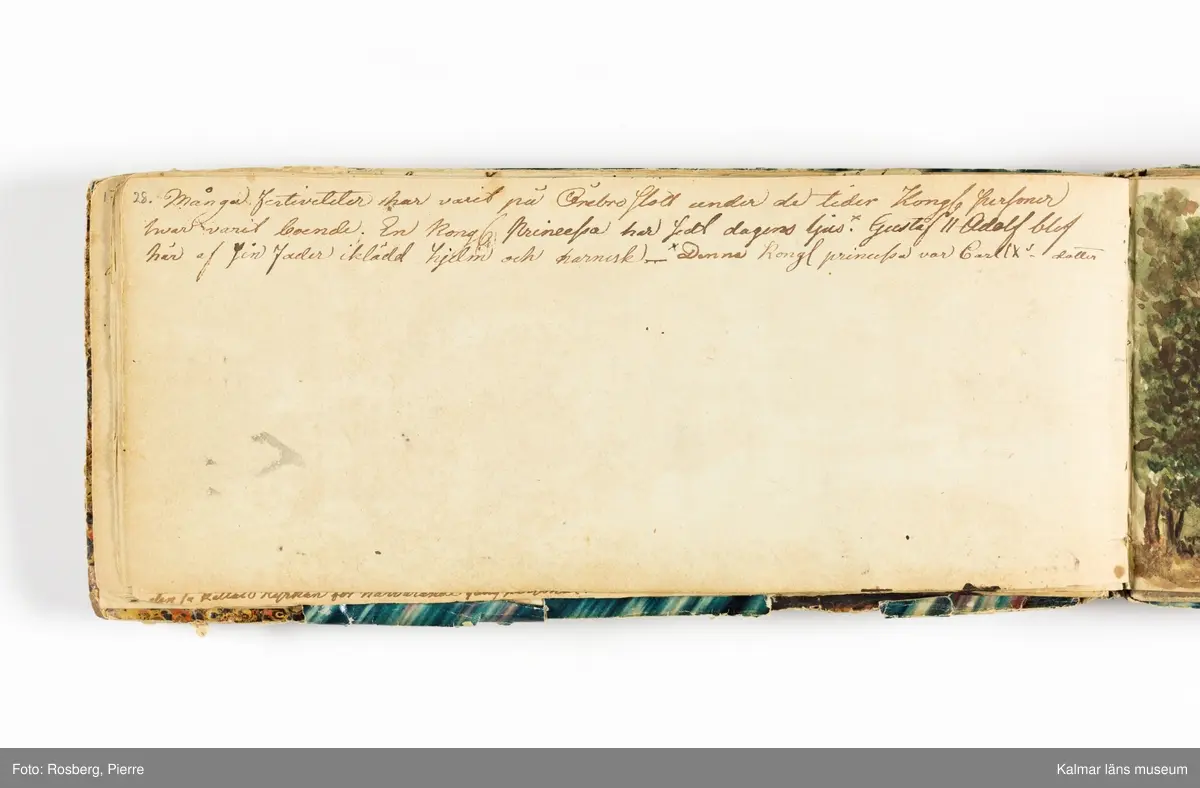 28. Många festiviteter har varit på Örebro slott under de tider Kongl. Personer
hvar varit boende. En Kongl. Princessa har sedt dagens ljus.x Gustaf II Adolf blef
här af sin fader iklädd hjelm och harnesk — x Denna Kongl princessa var Carl IX's dotter
den så kallade Kyrkan för närvarande
Foto: Rosberg, Pierre
Kalmar läns museum